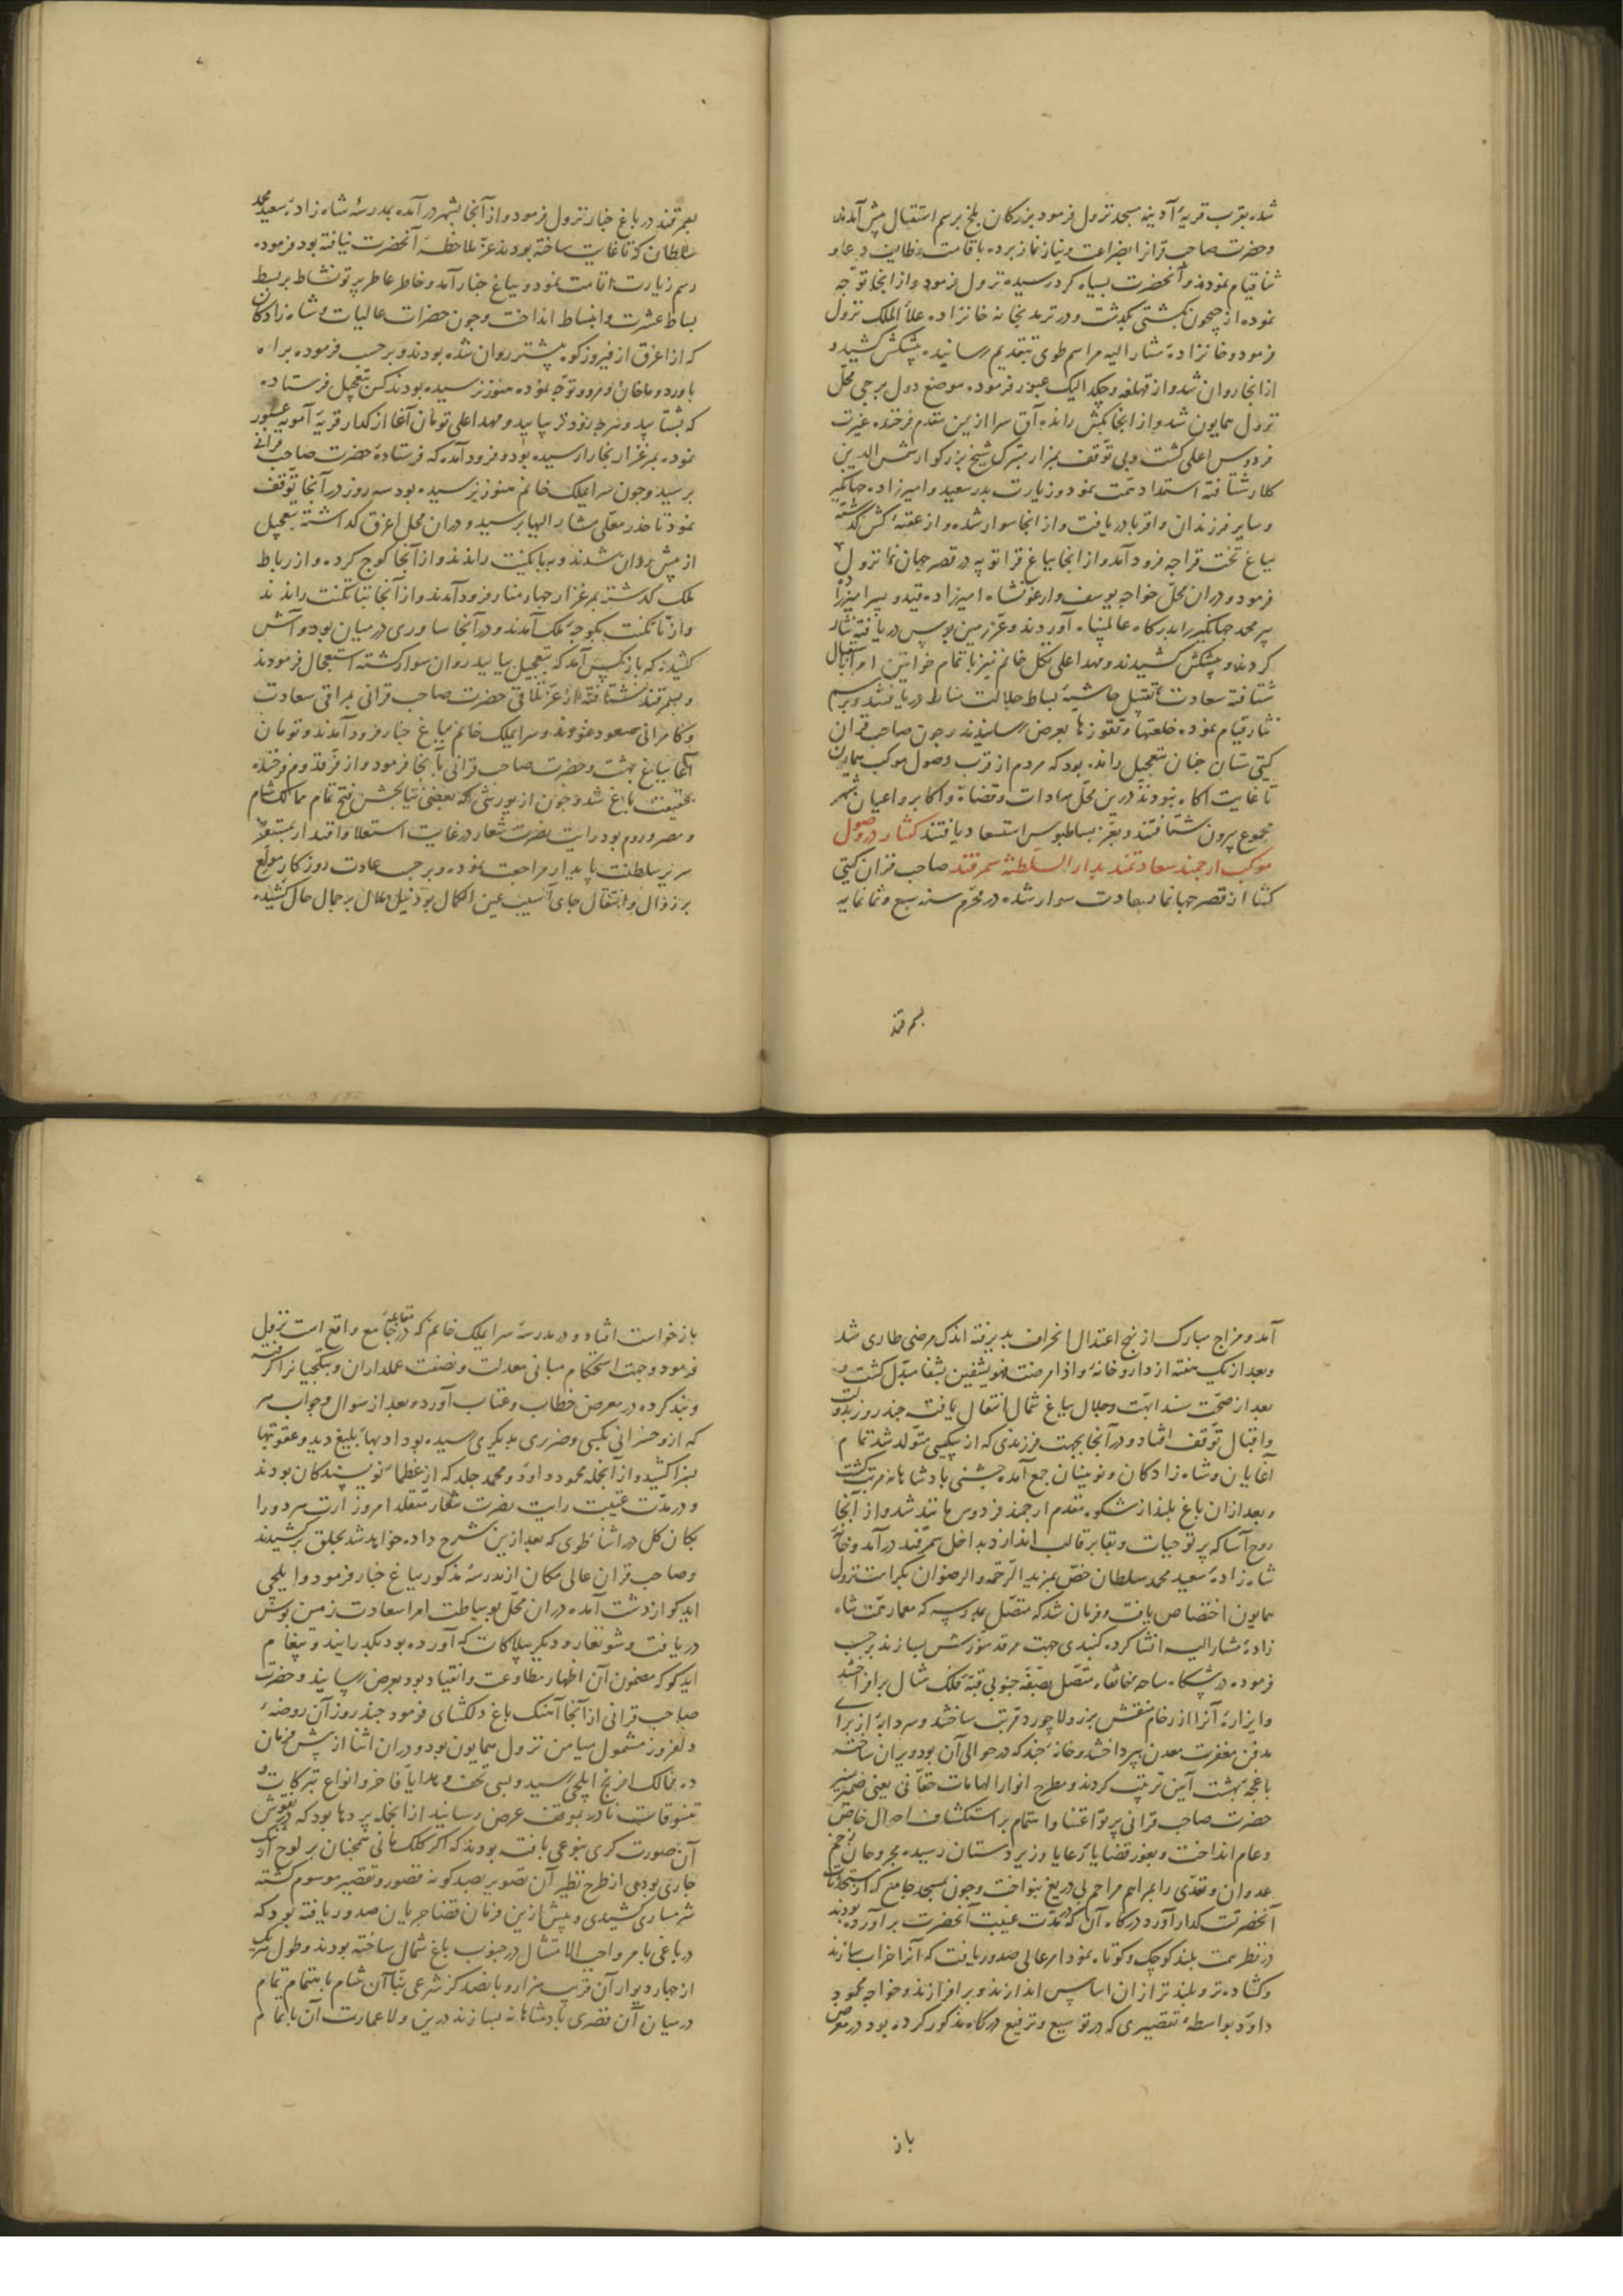 شده بقرب قریهٔ آدینه مسجد نزول فرمود بزرکان بلخ برسم استقبال پیش آمدند
و حضرت صاحب قرانرا بضراعت و نیاز نماز برده باقامت وظایف دعا و
ثنا قیام نمودند و آنحضرت بسیاه کرد رسیده نزول فرمود و از انجا توجّه
نموده از جیحون بکشتی بکذشت و در ترمد بخانه خانزاده علاء الملک نزول
فرمود و خانزادهٔ مشار الیه مراسم طوی بتقدیم رسانیده پیشکش کشید و
از انجا روان شد و از قهلغه و چکدالیک عبور فرموده موضع دول برجی محل
نزول همایون شد و از انجا بکش رانده آق سرا از یمن مقدم فرخنده غیرت
فردوس اعلی کشت و بی توقف بمزار متبرک شیخ بزرکوار شمس الدین
کلار شتافته استمداد همّت نمود و زیارت پدر سعید و امیرزاده جهانکیر
و سایر فرزندان و اقربا دریافت و از انجا سوار شده و از عقبهٔ کش کذشته
بباغ تخت قراجه فرود آمد و از انجا بباغ قراتوبه در قصر جهان نما نزول
فرمود و در ان محلّ خواجه یوسف و ارغونشاه امیرزاده قیدو پسر امیرزاده
پیر محمد جهانکیر را بدرکاه عالمپناه آوردند و عزّ زمین بوس دریافته نثار
کردند و پیشکش کشیدند و مهد اعلی تکل خانم نیز با تمام خواتین امرا استقبال
شتافته سعادت تقبیل حاشیهٔ بساط جلالت مناط دریافتند و برسم
نثار قیام نموده خلعتها و تقوزها بعرض رسانیدند و چون صاحب قران
کیتی ستان چنان بتعجیل رانده بود که مردم از قرب وصول موکب همایون
تا غایت آکاه نبودند درین محلّ سادات و قضاة و اکابر و اعیان شهر
مجموع بیرون شتافتند و بعزّ بساطبوس استسعاد یافتند کفتار در وصول
موکب ارجمند سعادتمند بدار السلطنهٔ سمرقند صاحب قران کیتی
کشا از قصر جهانما بسعادت سوار شده در محرّم سنه سبع و ثمانمایه
بسمرقند
بسمرقند در باغ چنار نزول فرمود و از آنجا بشهر درآمده بمدرسهٔ شاه زادهٔ سعید محمد
سلطان که تا غایت ساخته بودند عزّ ملاحظهٔ آنحضرت نیافته بود فرموده
رسم زیارت اقامت نمود و بباغ چنار آمد و خاطر عاطر پرتو نشاط بر بسط
بساط عشرت و انبساط انداخت و چون حضرات عالیات و شاه زادکان
که از اغرق از فیروزکوه پیشتر روان شده بودند و بر حسب فرموده براه
باورد و ماخان و مرو توجّه نموده هنوز نرسیده بودند کس بتعجیل فرستاده
که بشتابید و هر چه زودتر بیایید و مهد اعلی تومان آغا از کدار قریهٔ آمویه عبور
نموده بمرغزار بخارا رسیده بود و فرود آمده که فرستادهٔ حضرت صاحب قرانی
برسید و چون سرایملک خانم هنوز نرسیده بود سه روز در آنجا توقف
نمود تا خدر معلّی مشار الیها برسید و دران محل اغرق کذاشته بتعجیل
از پیش روان شدند و برباکیت راندند و از آنجا کوچ کرده و از رباط
ملک کذشته بمرغزار چهار منار فرود آمدند و از آنجا بتاتکنت راندند
و از تاتکنت بکوجه ملک آمدند و در آنجا ساوری در میان بود و آش
کشیده که باز کس آمد که بتعجیل بیایید روان سوار کشته استعجال فرمودند
و بسمرقند شتافته از عزّ تلاقی حضرت صاحب قرانی بمراقی سعادت
و کامرانی صعود نمودند و سرایملک خانم بباغ چنار فرود آمدند و تومان
آغا بباغ بهشت و حضرت صاحب قرانی بآنجا فرمود و از فرّ قدوم فرخنده
بحقیقت باغ شد و چون از یورشی که بعضی نتایجش فتح تمام ممالک شام
و مصر و روم بود رایت نصرت شعار در غایت استعلا و اقتدار بمستقرّ
سریر سلطنت پایدار مراجعت نموده و بر حسب عادت روزکار مولع
بر زوال و انتقال جای آسیب عین الکمال بود نیل ملال بر جمال حال کشیده
آمد و مزاج مبارک از نهج اعتدال انحراف پذیرفته اندک مرضی طاری شد
و بعد از یک هفته از داروخانهٔ و اذا مرضت فهو یشفین بشفا مبدّل کشت و
بعد از صحّت سند ابهّت و جلال بباغ شمال انتقال یافت چند روز بدولت
و اقبال توقف افتاد و در آنجا بجهت فرزندی که از بیکیسی متولد شد تمام
آغایان و شاه زادکان و نوئینان جمع آمده جشنی بادشاهانه مرتب کشت
و بعد از ان باغ بلند از شکوه مقدم ارجمند فردوس مانند شد و از آنجا
روح آسا که پرتو حیات و بقا بر قالب اندازد بداخل سمرقند درآمد و خانهٔ
شاه زادهٔ سعید محمد سلطان خصّ بمزید الرّحمه و الرضوان بکرامت نزول
همایون اختصاص یافت و فرمان شد که متصّل بمدرسه که معمار همّت شاه
زادهٔ مشار الیه انشا کرده کنبدی جهت مرقد منوّرش بسازند بر حسب
فرموده در پیشکاه ساحه خانقاه متصّل بصفّهٔ جنوبی قبّهٔ فلک مثال برافراختند
و ایزارهٔ آنرا از رخام منقش بزر و لاجورد مرتب ساختند و سردابهٔ از برای
مدفن مغفرت معدن بپرداختند و خانهٔ چند که در حوالی آن بود ویران ساخته
باغچهٔ بهشت آیین ترتیب کردند و مطرح انوار الهامات حقّانی یعنی ضمیر منیر
حضرت صاحب قرانی پرتو اعتنا و اهتمام بر استکشاف احوال خاص
و عام انداخت و بغور قضایا رعایا و زیردستان رسیده مجروحان زخم
عدوان و تعدّی را بمراهم مراحم بی دریغ بنواخت و چون بمسجد جامع که از مستحدثات
آنحضرتست کذار آورد درکاه آن که در مدّت غیبت آنحضرت برآورده بودند
در نظر همت بلند کوچک و کوتاه نمود امر عالی صدور یافت که آنرا خراب سازند
و کشاده تر و بلند تر از ان اساس اندازند و برافرازند و خواجه محمود
داوّد بواسطهٔ تقصیری که در توسیع و ترفیع درکاه مذکور کرده بود در معرض
باز
باز خواست افتاد و در مدرسهٔ سرایملک خانم که در مقابلهٔ جامع واقع است نزول
فرمود و جهت استحکام مبانی معدلت و نصفت عملداران و بیکجیانرا کرفته
و بند کرده در معرض خطاب و عتاب آورد و بعد از سوال و جواب هر
که ازو خسرانی بکسی و ضرری بدیکری رسیده بود ادبهاء بلیغ دید و عقوبتها
بسزا کشید و از آنجمله محمود داوّد و محمد جلد که از عظماء نویسندکان بودند
و در مدّت غیبت رایت نصرت شعار متقلد امور وزارت هر دو را
بکان کل در اثناء طوی که بعد ازین شرح داده خواهد شد بحلق برکشیدند
و صاحب قران عالی مکان از مدرسهٔ مذکور بباغ چنار فرمود و ایلچی
ایدکو از دشت آمده دران محلّ بوساطت امرا سعادت زمین بوس
دریافت و شونقار و دیکر بیلاکات که آورده بود بکذرانید و پیغام
ایدکو که مضمون آن اظهار مطاوعت و انقیاد بود بعرض رسانید و حضرت
صاحب قرانی از آنجا آهنک باغ دلکشای فرمود چند روز آن روضهٔ
دلفروز مشمول میامن نزول همایون بود و دران اثنا از پیش فرمان
ده ممالک افرنج ایلچی رسید و بسی تحف و هدایا فاخر و انواع تبرکات و
تنسوقات نادره بموقف عرض رسانید از انجمله پردها بود که در نقوش
آن صورت کری بنوعی یافته بودند که اکر کلک مانی همچنان بر لوح ارتنک
جاری بودی از طرح نظیر آن تصویر بصد کونه قصور و تقصیر موسوم کشته
شرمساری کشیدی و پیش ازین فرمان قضا جریان صدور یافته بود که
در باغی بامر واجب الامتثال در جنوب باغ شمال ساخته بودند و طول هریک
از چهار دیوار آن قریب هزار و پانصد کز شرعی بنّاآن شام باهتمام تمام
در میان آن قصری بادشاهانه بسازند درین ولا عمارت آن باتمام